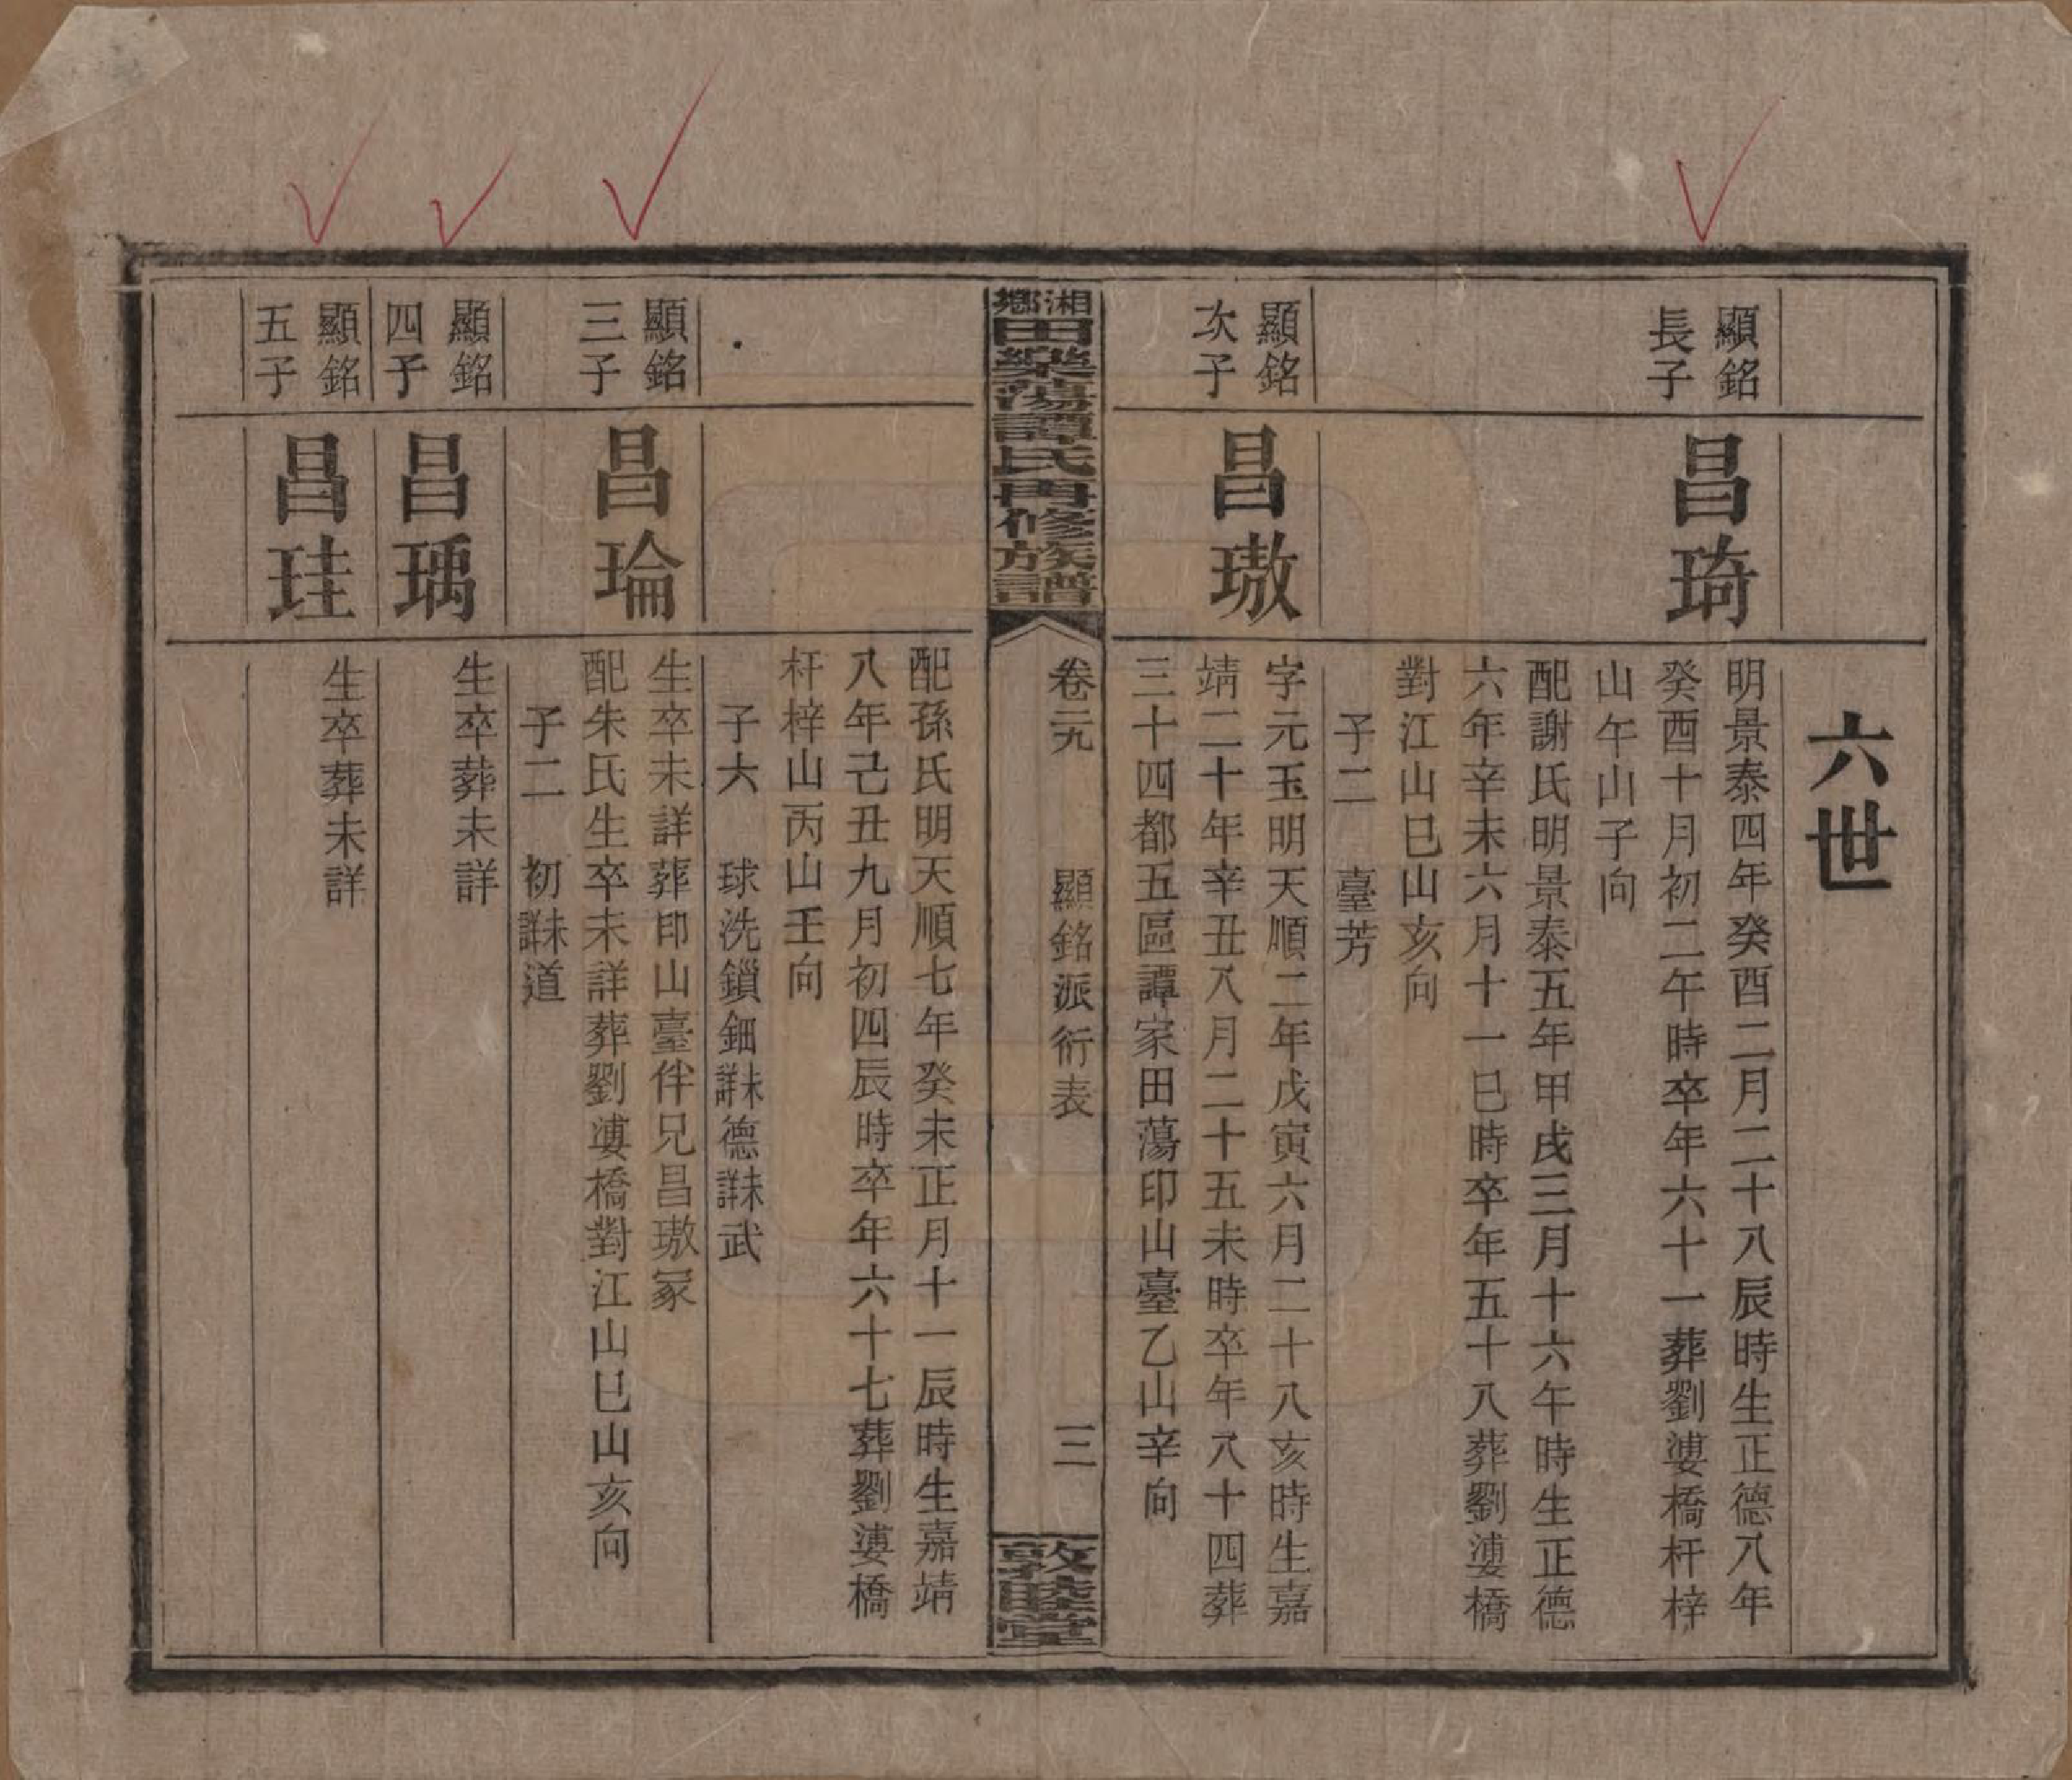 六世
顯銘
長子
昌琦
明景泰四年癸酉二月二十八辰時生正德八年
癸酉十月初二午時卒年六十一葬劉漊橋杆梓
山午山子向
配謝氏明景泰五年甲戌三月十六午時生正德
六年辛未六月十一巳時卒年五十八葬劉漊橋
對江山巳山亥向
子二 臺芳
顯銘
次子
昌璈
字元玉明天順二年戊寅六月二十八亥時生嘉
靖二十年辛丑八月二十五未時卒年八十四葬
三十四都五區譚家田蕩印山臺乙山辛向
湘鄉田樂蕩譚氏再修族譜
卷二九
顯銘派衍表
三
敦睦堂
配孫氏明天順七年癸未正月十一辰時生嘉靖
八年己丑九月初四辰時卒年六十七葬劉漊橋
杆梓山丙山壬向
子六 球洗鎖鈿未詳德未詳武
顯銘
三子
昌瑜
生卒未詳葬印山臺伴兄昌璈冢
配朱氏生卒未詳葬劉漊橋對江山巳山亥向
子二 初未詳道
顯銘
四子
昌瑀
生卒葬未詳
顯銘
五子
昌珪
生卒葬未詳